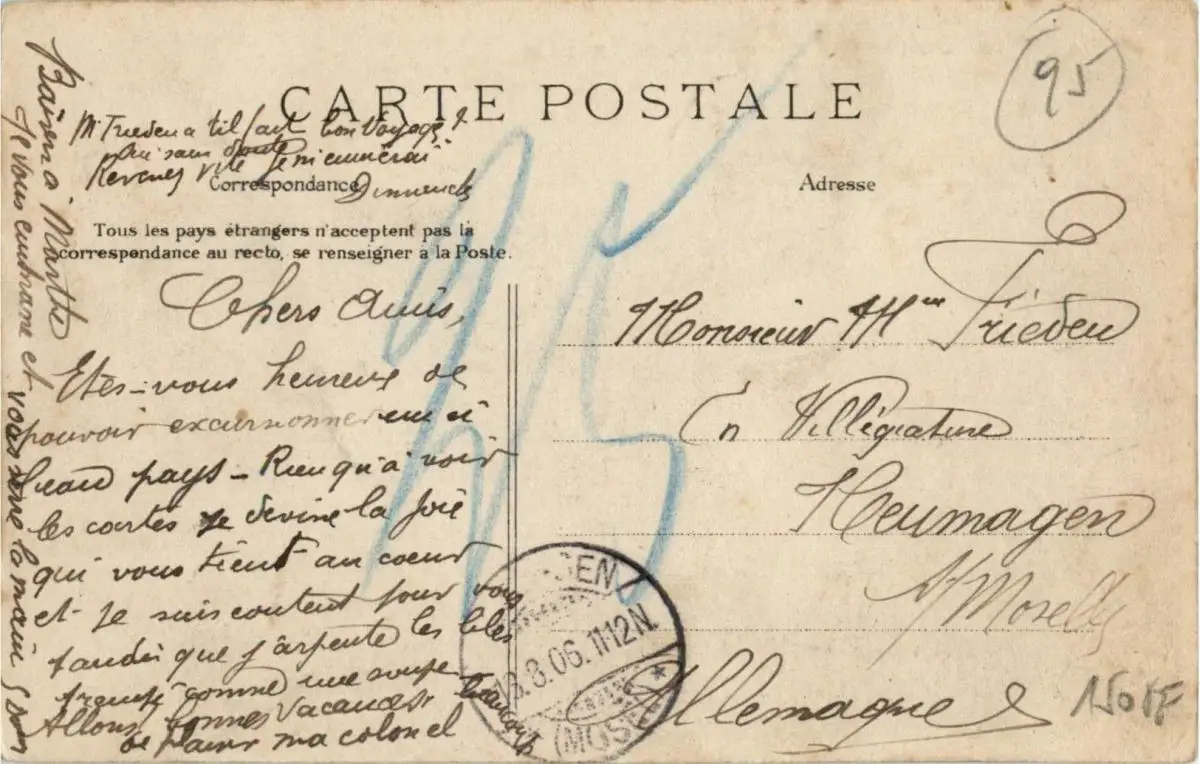 95
CARTE POSTALE
Mr Frieden a til fait bon voyage?
oui sans doute
Revenez vite je m'ennuierai
Correspondance
Dimanche
Adresse
Tous les pays étrangers n'acceptent pas la
correspondance au recto, se renseigner à la Poste.
Chers Amis,
Etes-vous heureux de
pouvoir excursionner en si
beau pays - Rien qu'à voir
les cartes je devine la joie
qui vous tient au coeur
et je suis content pour vous
tandis que j'arpente les blés
trempé comme une soupe
Allons bonnes vacances, beaucoup
de plaisir ma colonel
Baisers à Marthe
Je vous embrasse et vous serre la main
Monsieur Mme Frieden
En Villégiature
Neumagen
s/ Moselle
Allemagne
GEN
8.8.06. 11-12N.
(MOSEL)
150 FF